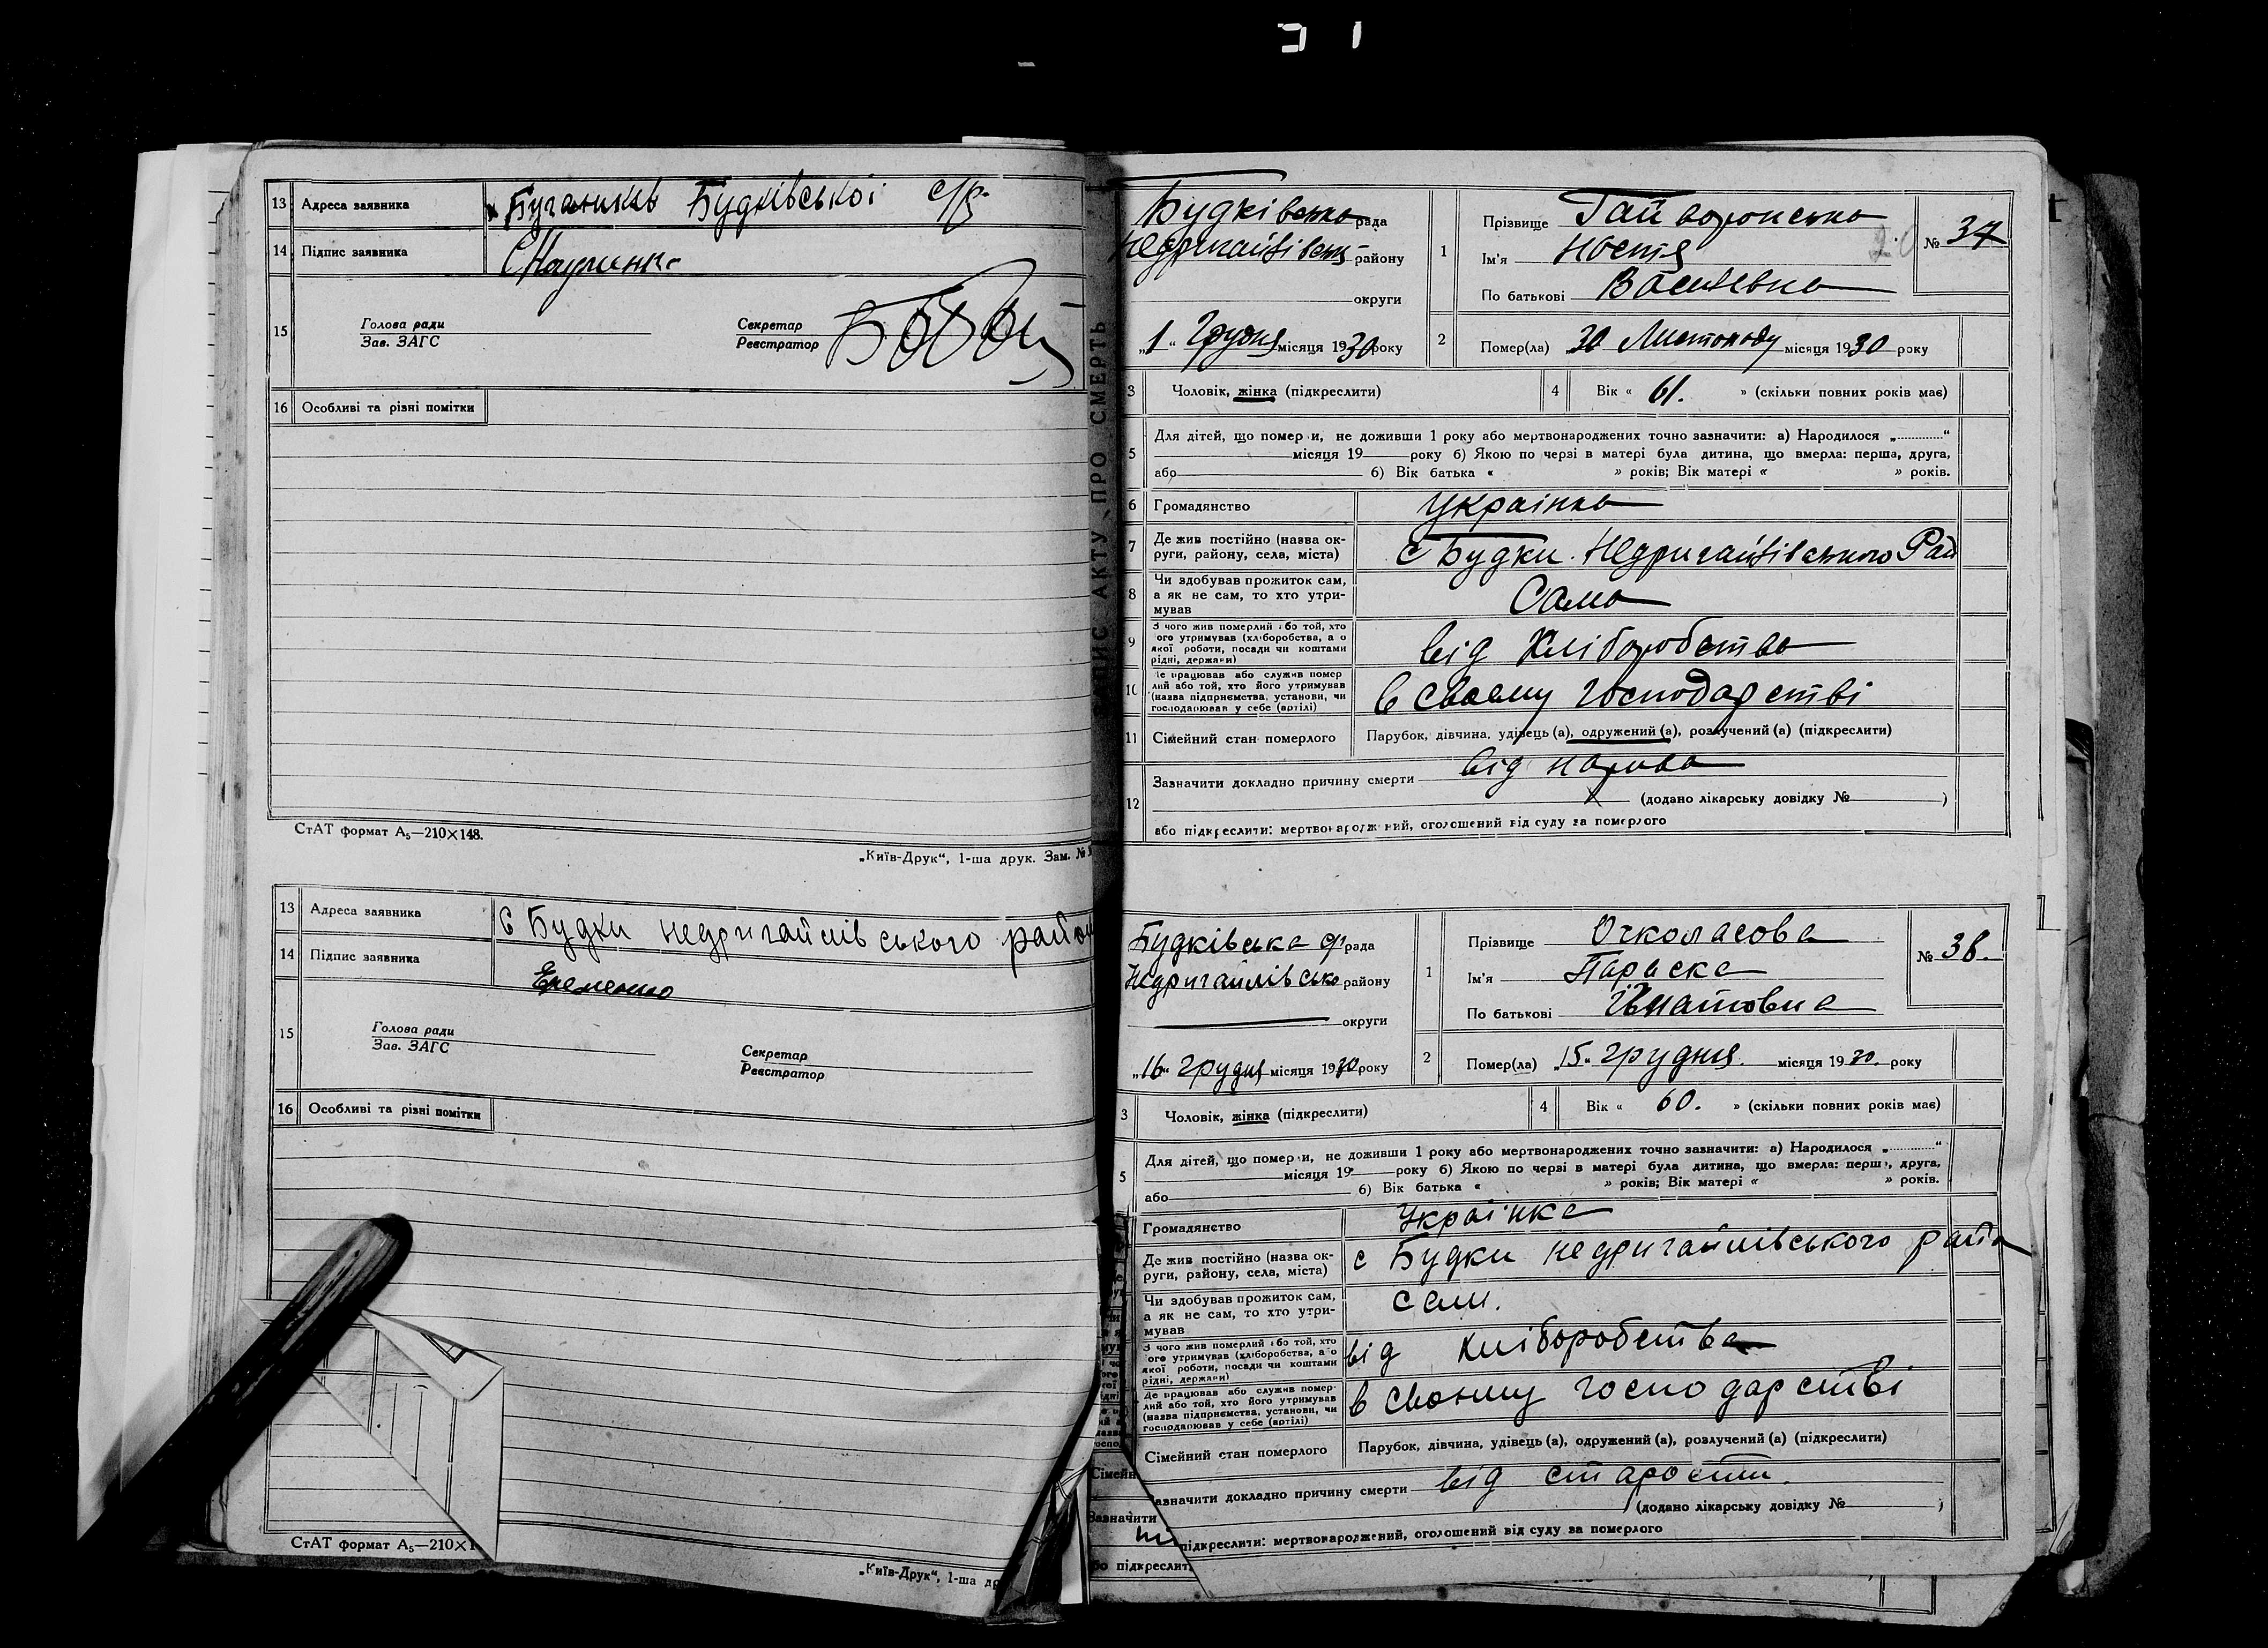 13 Адреса заявника Бугаників Будківської с/р.
14 Підпис заявника
15 Голова ради
Зав. ЗАГС
Секретар
Реєстратор
16 Особливі та різні помітки
СтАТ формат А₅—210×148.
„Київ-Друк“, 1-ша друк. Зам. №
13 Адреса заявника с Будки недригайлівського район
14 Підпис заявника Еременко
15 Голова ради
Зав. ЗАГС
Секретар
Реєстратор
16 Особливі та різні помітки
СтАТ формат А₅—210×1
„Київ-Друк“, 1-ша др
ЗАПИС АКТУ ПРО СМЕРТЬ
Будківська рада
Недригайлівськ району
округи
„1“ Грудня місяця 1930 року
1 Прізвище Гайворонська
Ім'я Настя
По батькові Василевна
№ 37
2 Помер(ла) 30 Листопаду місяця 1930 року
3 Чоловік, жінка (підкреслити)
4 Вік « 61. » (скільки повних років має)
5 Для дітей, що померли, не доживши 1 року або мертвонароджених точно зазначити: а) Народилося „.............“
місяця 19 року б) Якою по черзі в матері була дитина, що вмерла: перша, друга,
або б) Вік батька « » років; Вік матері « » років.
6 Громадянство Українка
7 Де жив постійно (назва ок-
руги, району, села, міста) с Будки Недригайлівського Рай
8 Чи здобував прожиток сам,
а як не сам, то хто утри-
мував Сама
9 З чого жив померлий або той, хто
його утримував (хліборобства, а о
якої роботи, посади чи коштами
рідні, держави) від Хліборобства
10 Де працював або служив помер
лий або той, хто його утримував
(назва підприємства, установи, чи
господарював у себе (артілі) в своему господарстві
11 Сімейний стан померлого Парубок, дівчина, удівець (а), одружений (а), розлучений (а) (підкреслити)
12 Зазначити докладно причину смерти від нарива
(додано лікарську довідку № )
або підкреслити: мертвонароджений, оголошений від суду за померлого
Будківська с/р рада
Недригайлівсько району
округи
„16“ Грудня місяця 1930 року
1 Прізвище Очколасова
Ім'я Параска
По батькові Гнатовна
№ 38.
2 Помер(ла) „15“ грудня місяця 1930. року
3 Чоловік, жінка (підкреслити)
4 Вік « 60. » (скільки повних років має)
5 Для дітей, що померли, не доживши 1 року або мертвонароджених точно зазначити: а) Народилося „.............“
місяця 19 року б) Якою по черзі в матері була дитина, що вмерла: перша, друга,
або б) Вік батька « » років; Вік матері « » років.
Громадянство Українка
Де жив постійно (назва ок-
руги, району, села, міста) с Будки недригайлівського райо
Чи здобував прожиток сам,
а як не сам, то хто утри-
мував сами.
З чого жив померлий або той, хто
його утримував (хліборобства, а о
якої роботи, посади чи коштами
рідні, держави) від хліборобства
Де працював або служив помер-
лий або той, хто його утримував
(назва підприємства, установи, чи
господарював у себе (артілі) в своему господарстві
Сімейний стан померлого Парубок, дівчина, удівець (а), одружений (а), розлучений (а) (підкреслити)
Зазначити докладно причину смерти від старости.
(додано лікарську довідку № )
підкреслити: мертвонароджений, оголошений від суду за померлого
Сімейн
Зазначити
бо підкреслити